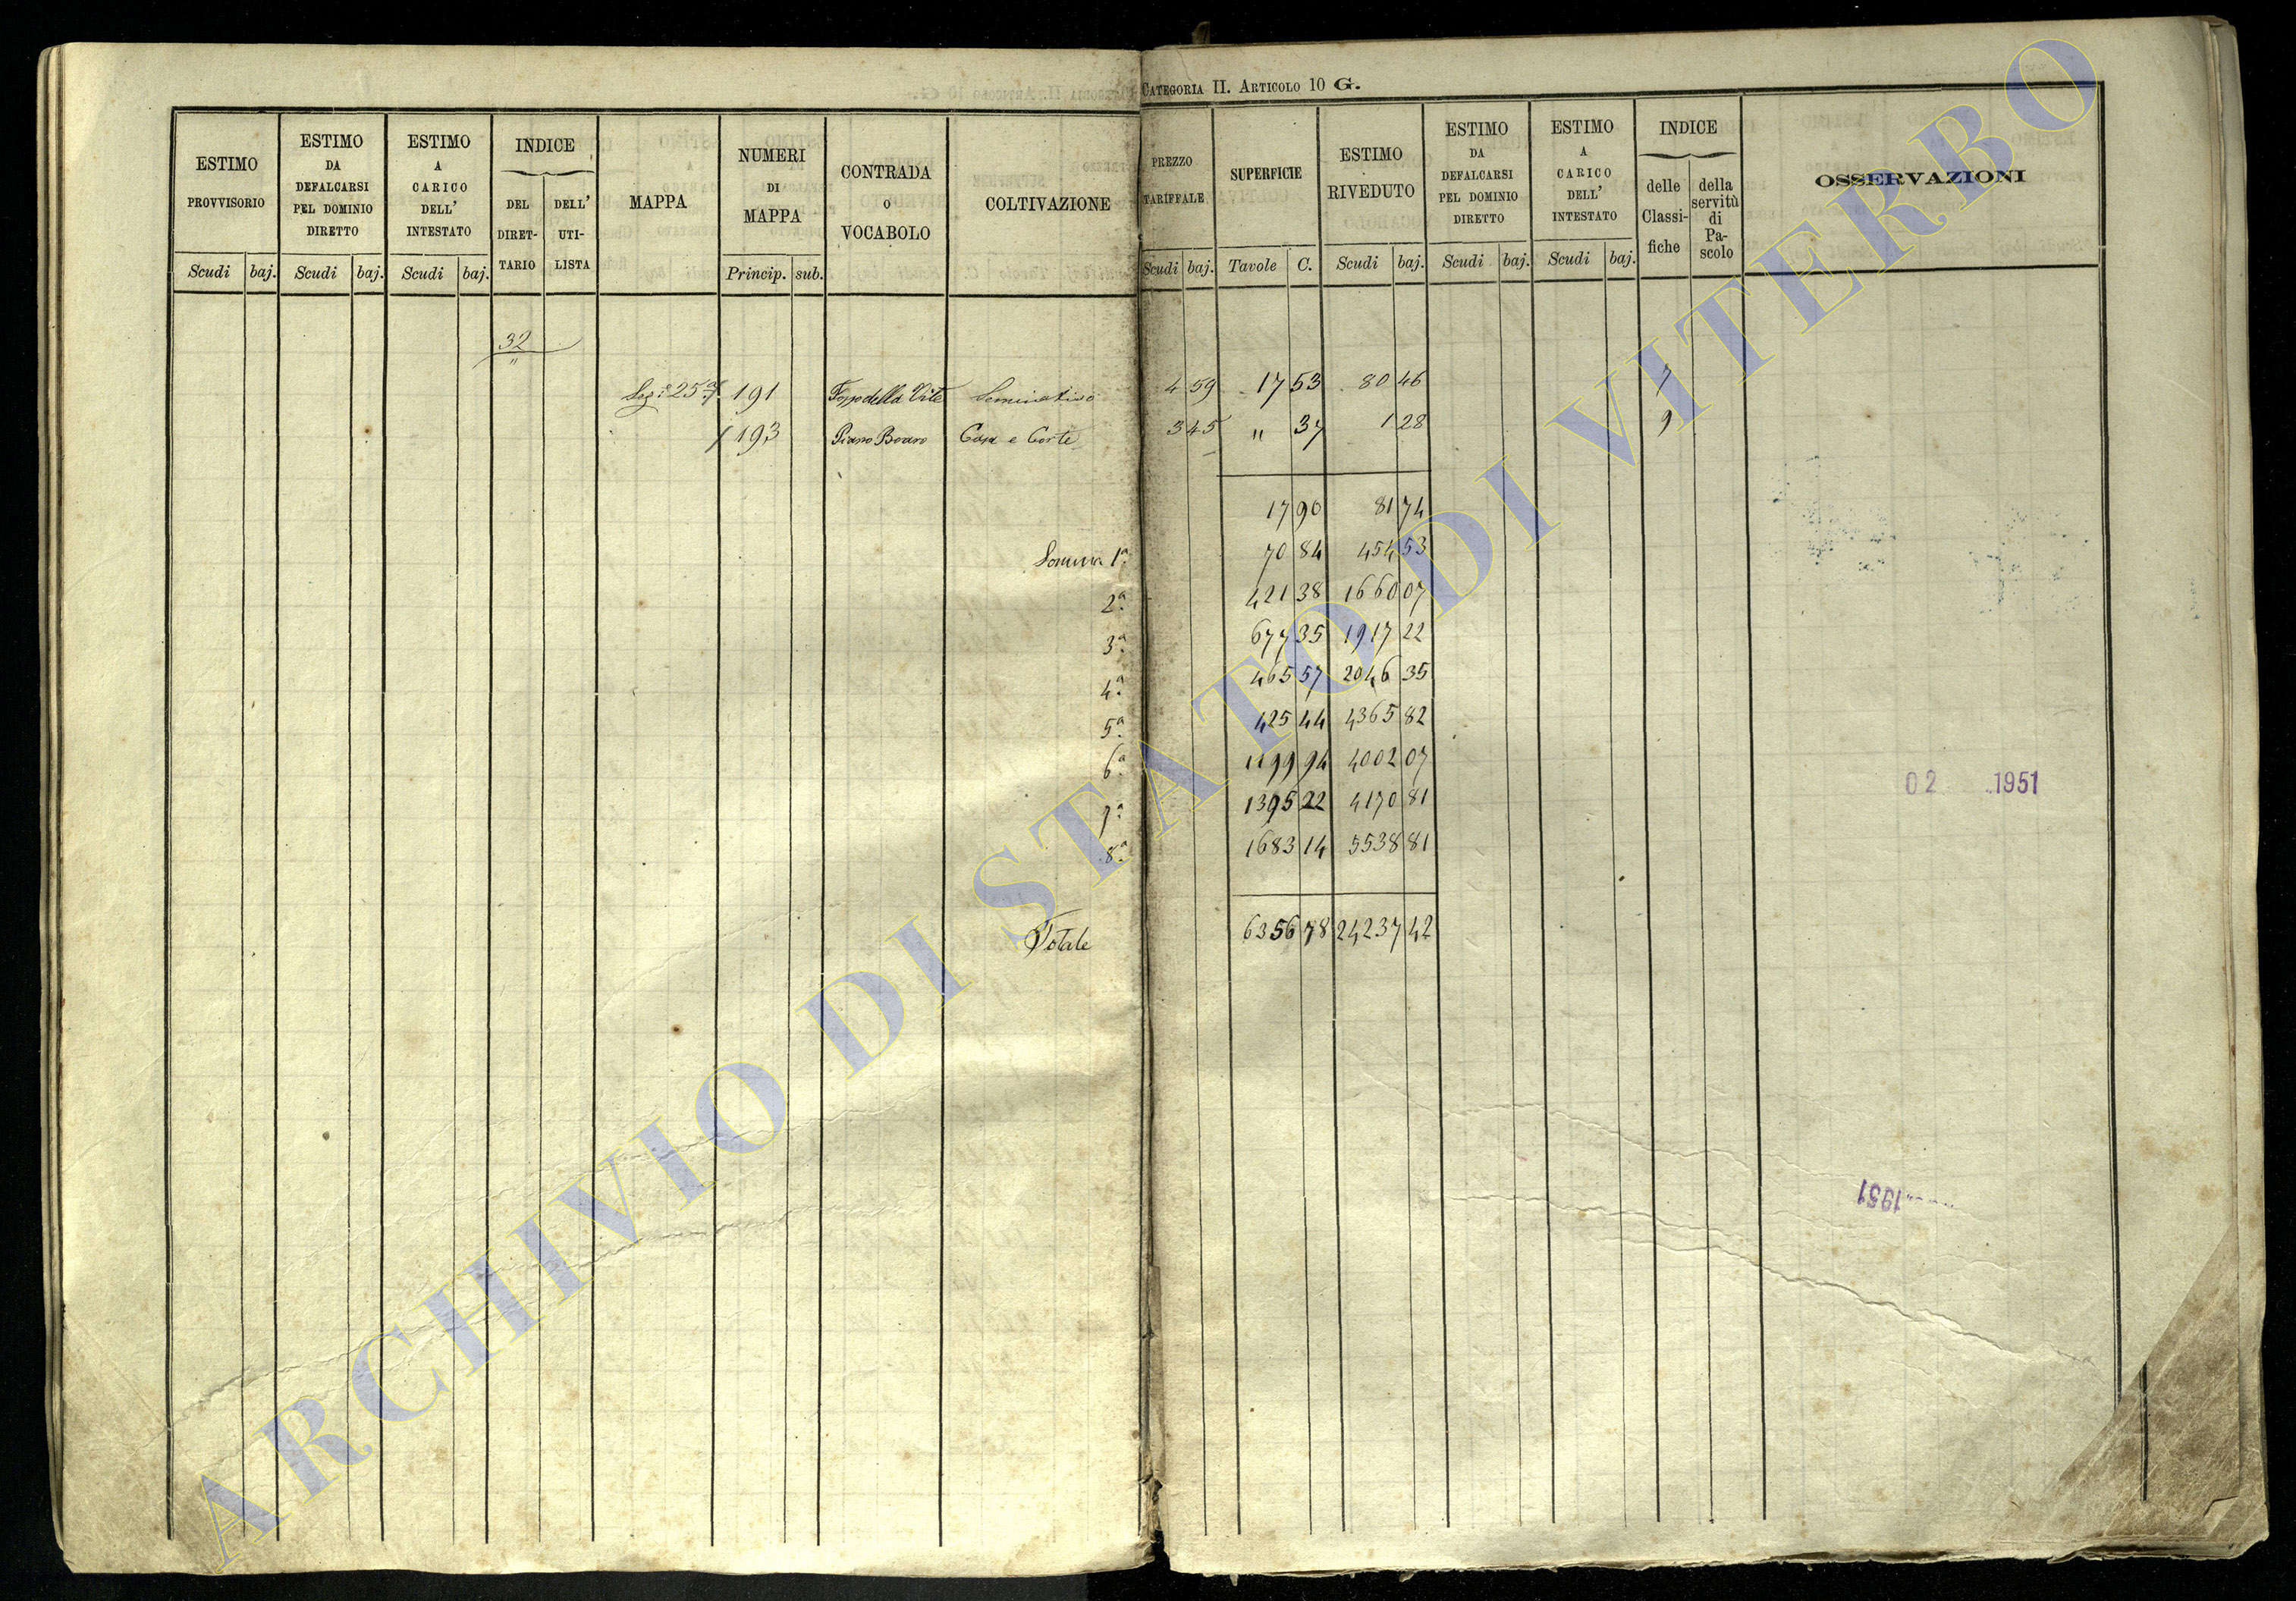 CATEGORIA II. ARTICOLO 10 G.
ESTIMO PROVVISORIO
Scudi baj.
ESTIMO DA DEFALCARSI PEL DOMINIO DIRETTO
Scudi baj.
ESTIMO A CARICO DELL' INTESTATO
Scudi baj.
INDICE
DEL DIRET-TARIO
DELL' UTI-LISTA
MAPPA
NUMERI DI MAPPA
Princip. sub.
CONTRADA O VOCABOLO
COLTIVAZIONE
PREZZO TARIFFALE
Scudi baj.
SUPERFICIE
Tavole C.
ESTIMO RIVEDUTO
Scudi baj.
ESTIMO DA DEFALCARSI PEL DOMINIO DIRETTO
Scudi baj.
ESTIMO A CARICO DELL' INTESTATO
Scudi baj.
INDICE
delle Classi-fiche
della servitù di Pa-scolo
OSSERVAZIONI
32
"
Sez.e 25ª 191 Fosso della Vite Seminativo 4 59 17 53 80 46 7
193 Piano Bovaro Casa e Corte 3 45 " 37 1 28 9
17 90 81 74
Somma 1ª 70 84 454 53
2ª 421 38 1660 07
3ª 677 35 1917 22
4ª 465 57 2046 35
5ª 425 44 4365 82
6ª 1199 94 4002 07
7ª 1395 22 4170 81
8ª 1683 14 5538 81
Totale 6356 78 24237 42
02 1951
1951
ARCHIVIO DI STATO DI VITERBO